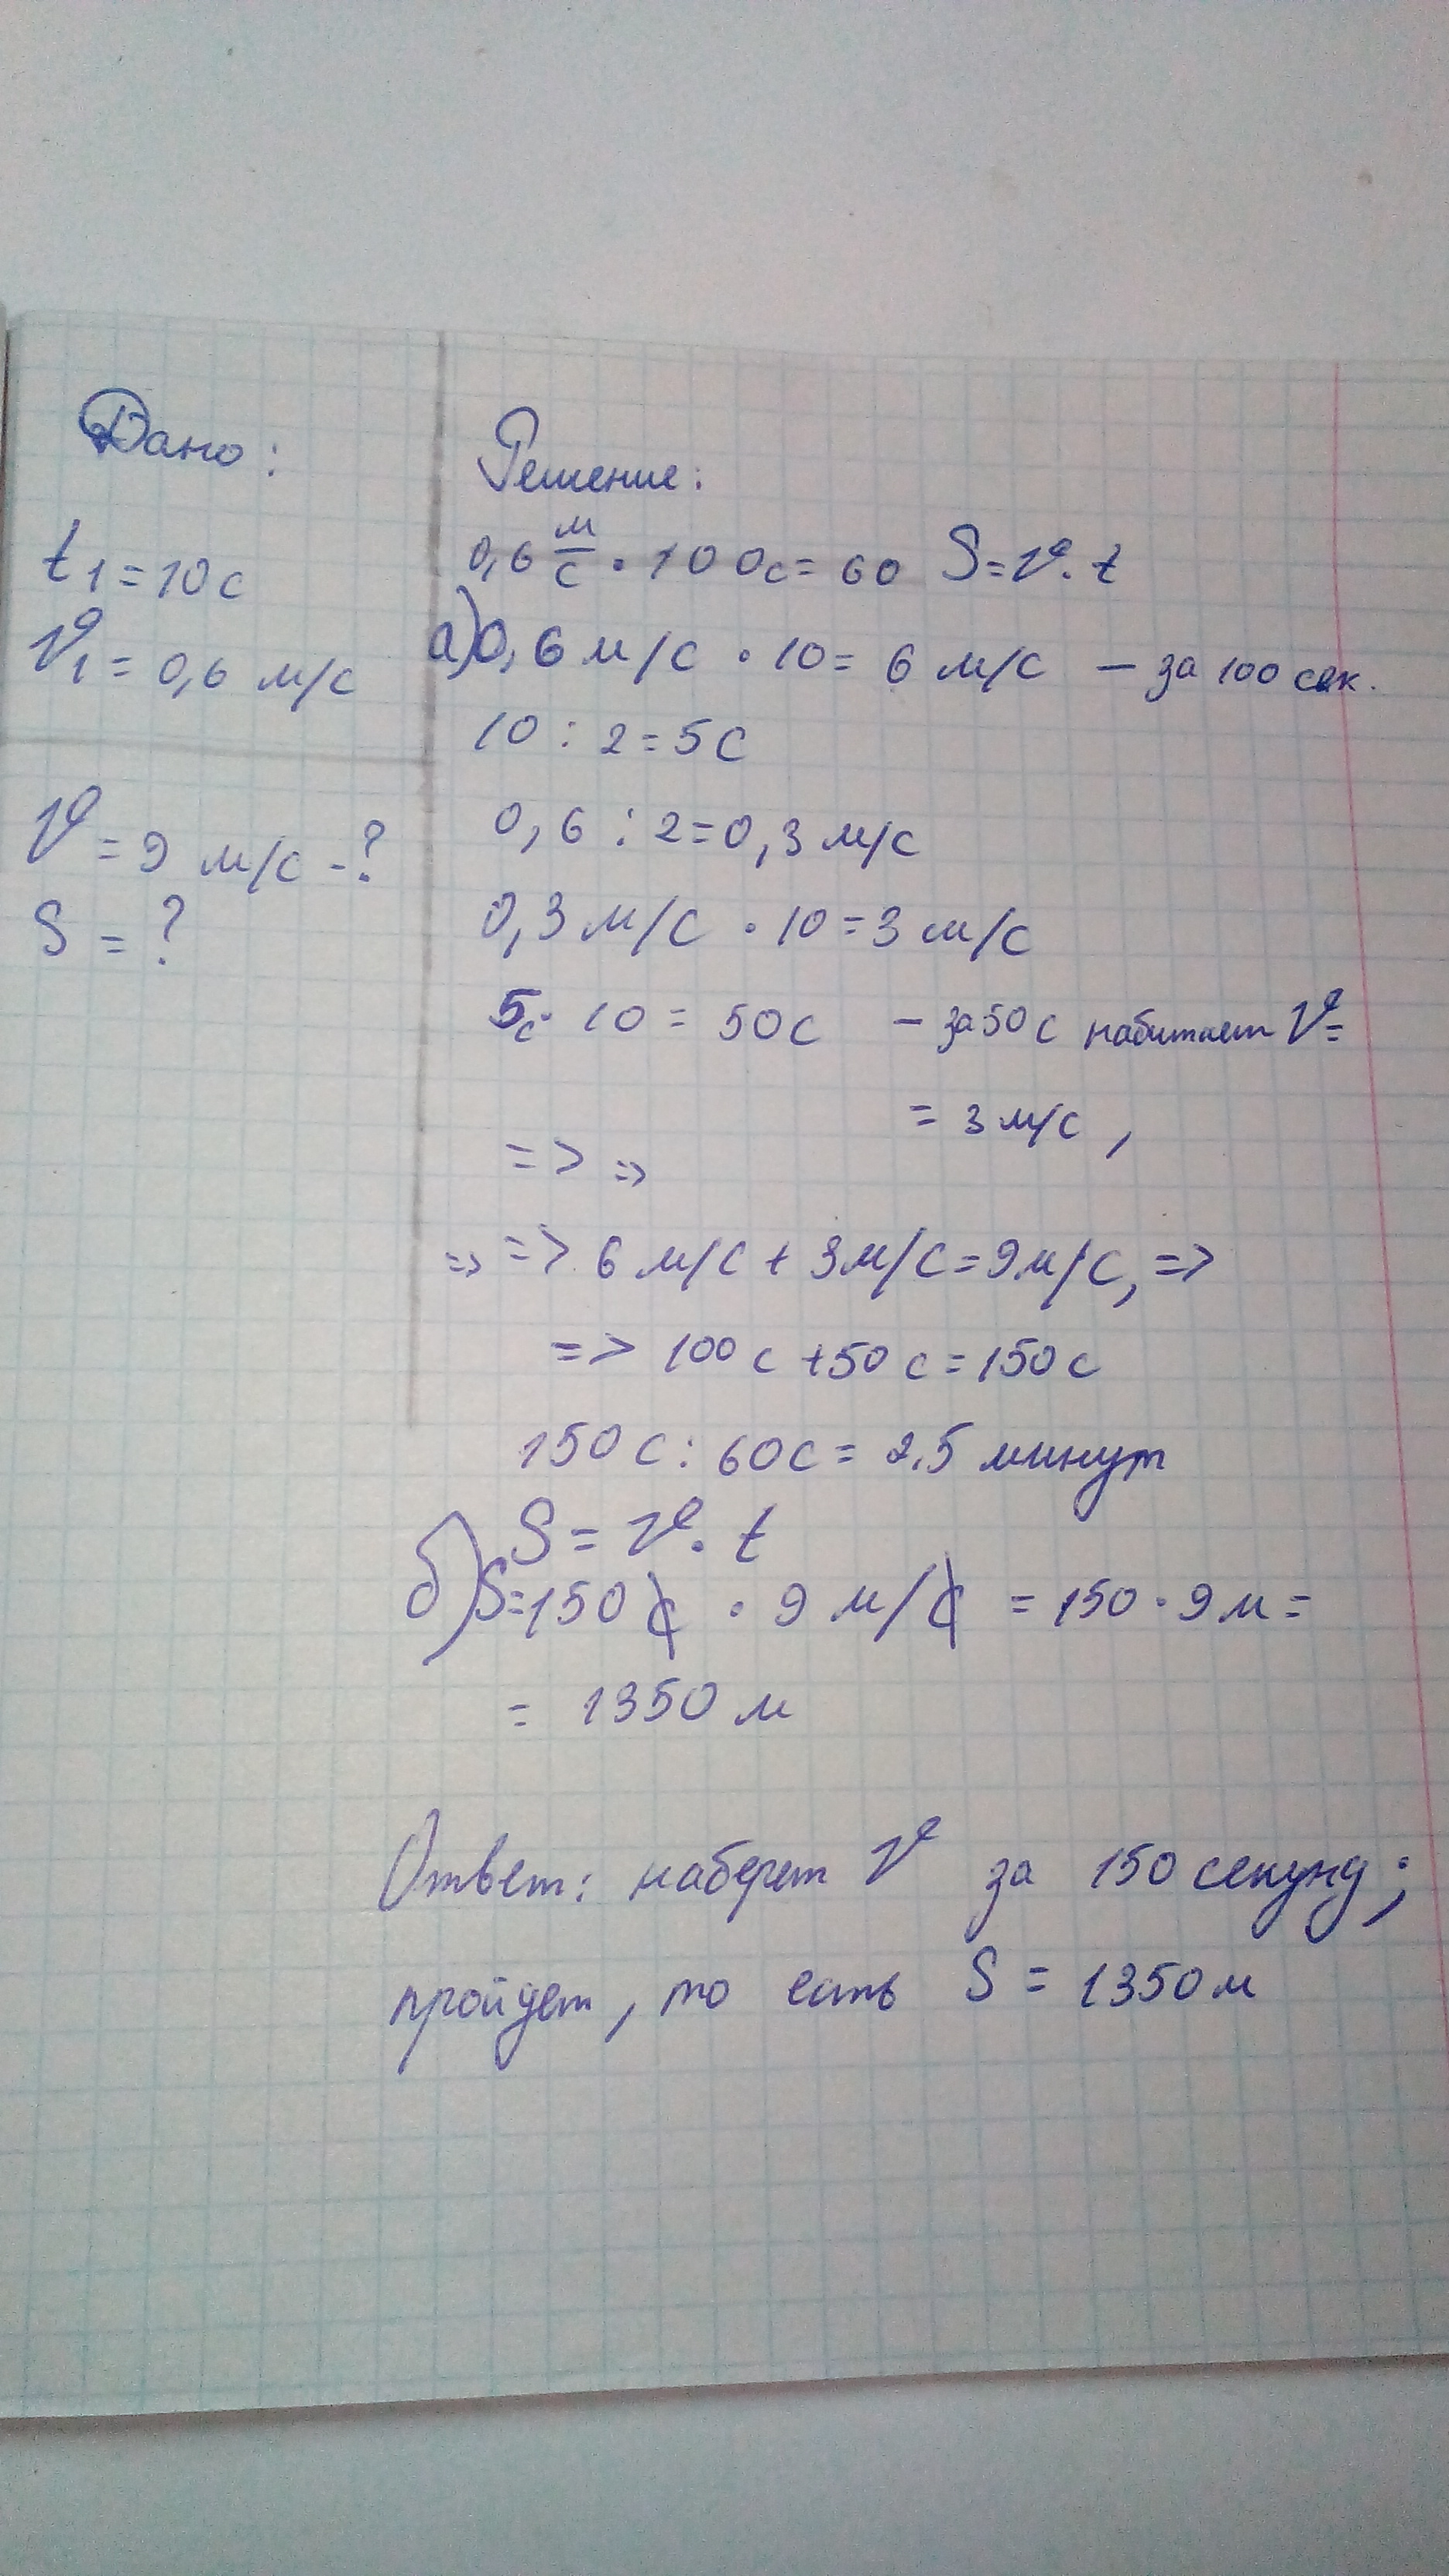 Дано:
t1 = 10 с
V1 = 0,6 м/с
V = 9 м/с - ?
S = ?
Решение:
0,6 м/с · 100с = 60 S = V · t
а) 0,6 м/с · 10 = 6 м/с – за 100 сек.
10 : 2 = 5 с
0,6 : 2 = 0,3 м/с
0,3 м/с · 10 = 3 м/с
5с · 10 = 50 с – за 50 с V =
= 3 м/с ,
=> =>
=> => 6 м/с + 3 м/с = 9 м/с, =>
=> 100 с + 50 с = 150 с
150 с : 60 с = 2,5 минут
S = V · t
б) S = 150 с · 9 м/с = 150 · 9 м =
= 1350 м
Ответ: наберет V за 150 секунд ;
пройдет, то есть S = 1350 м